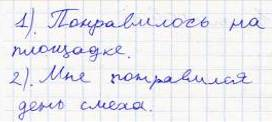 1). Понравилось на
площадке.
2). Мне понравился
день смеха.